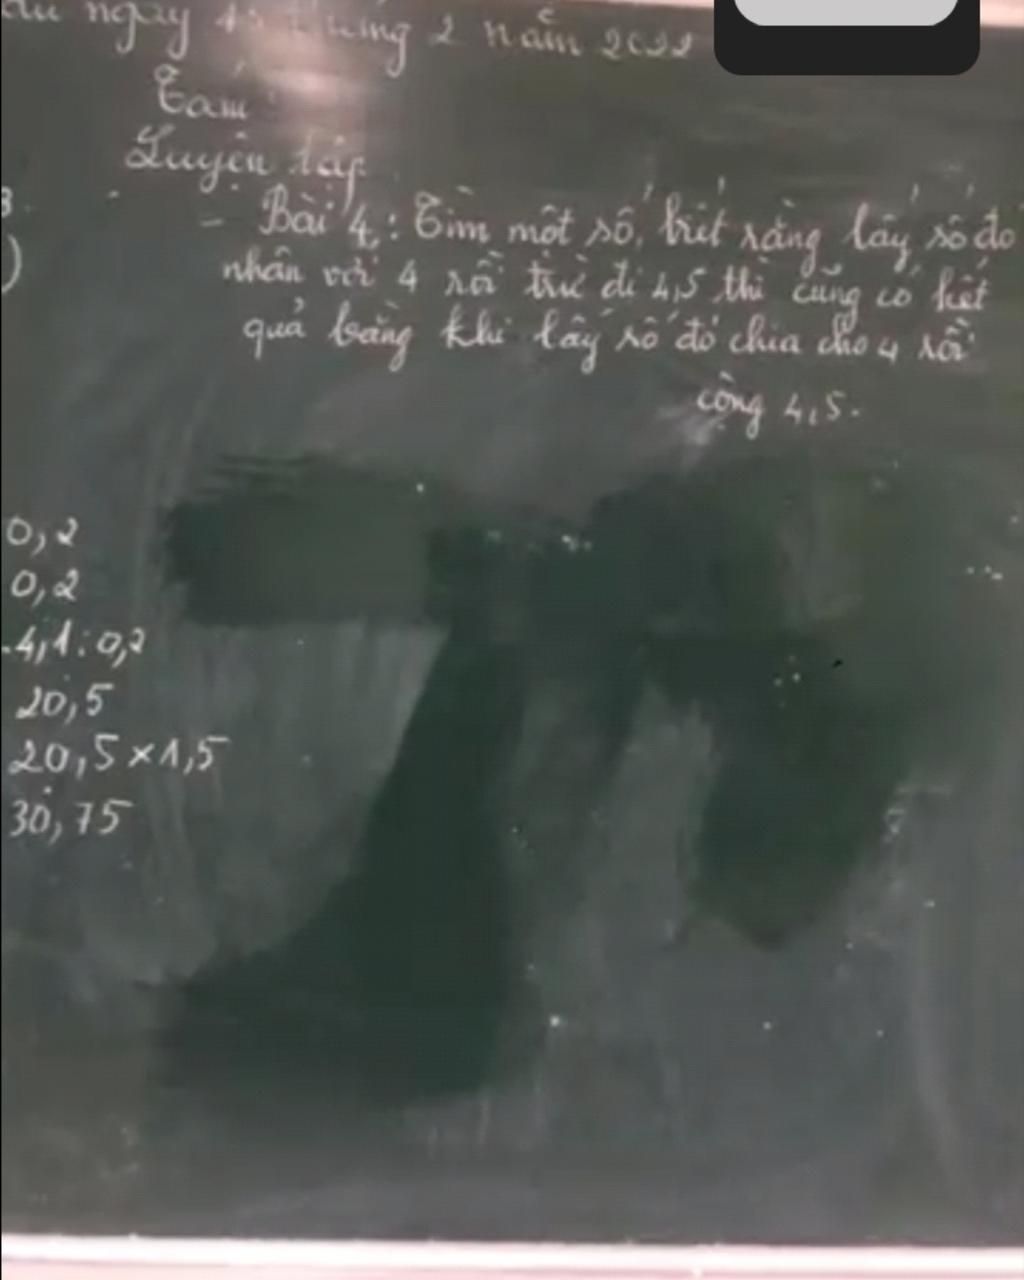 ngày tháng 2 năm 2022
Toán
Luyện tập
- Bài 4: Tìm một số, biết rằng lấy số đó
nhân với 4 rồi trừ đi 4,5 thì cũng có kết
quả bằng khi lấy số đó chia cho 4 rồi
cộng 4,5.
0,2
0,2
4,1:0,2
20,5
20,5×1,5
30,75